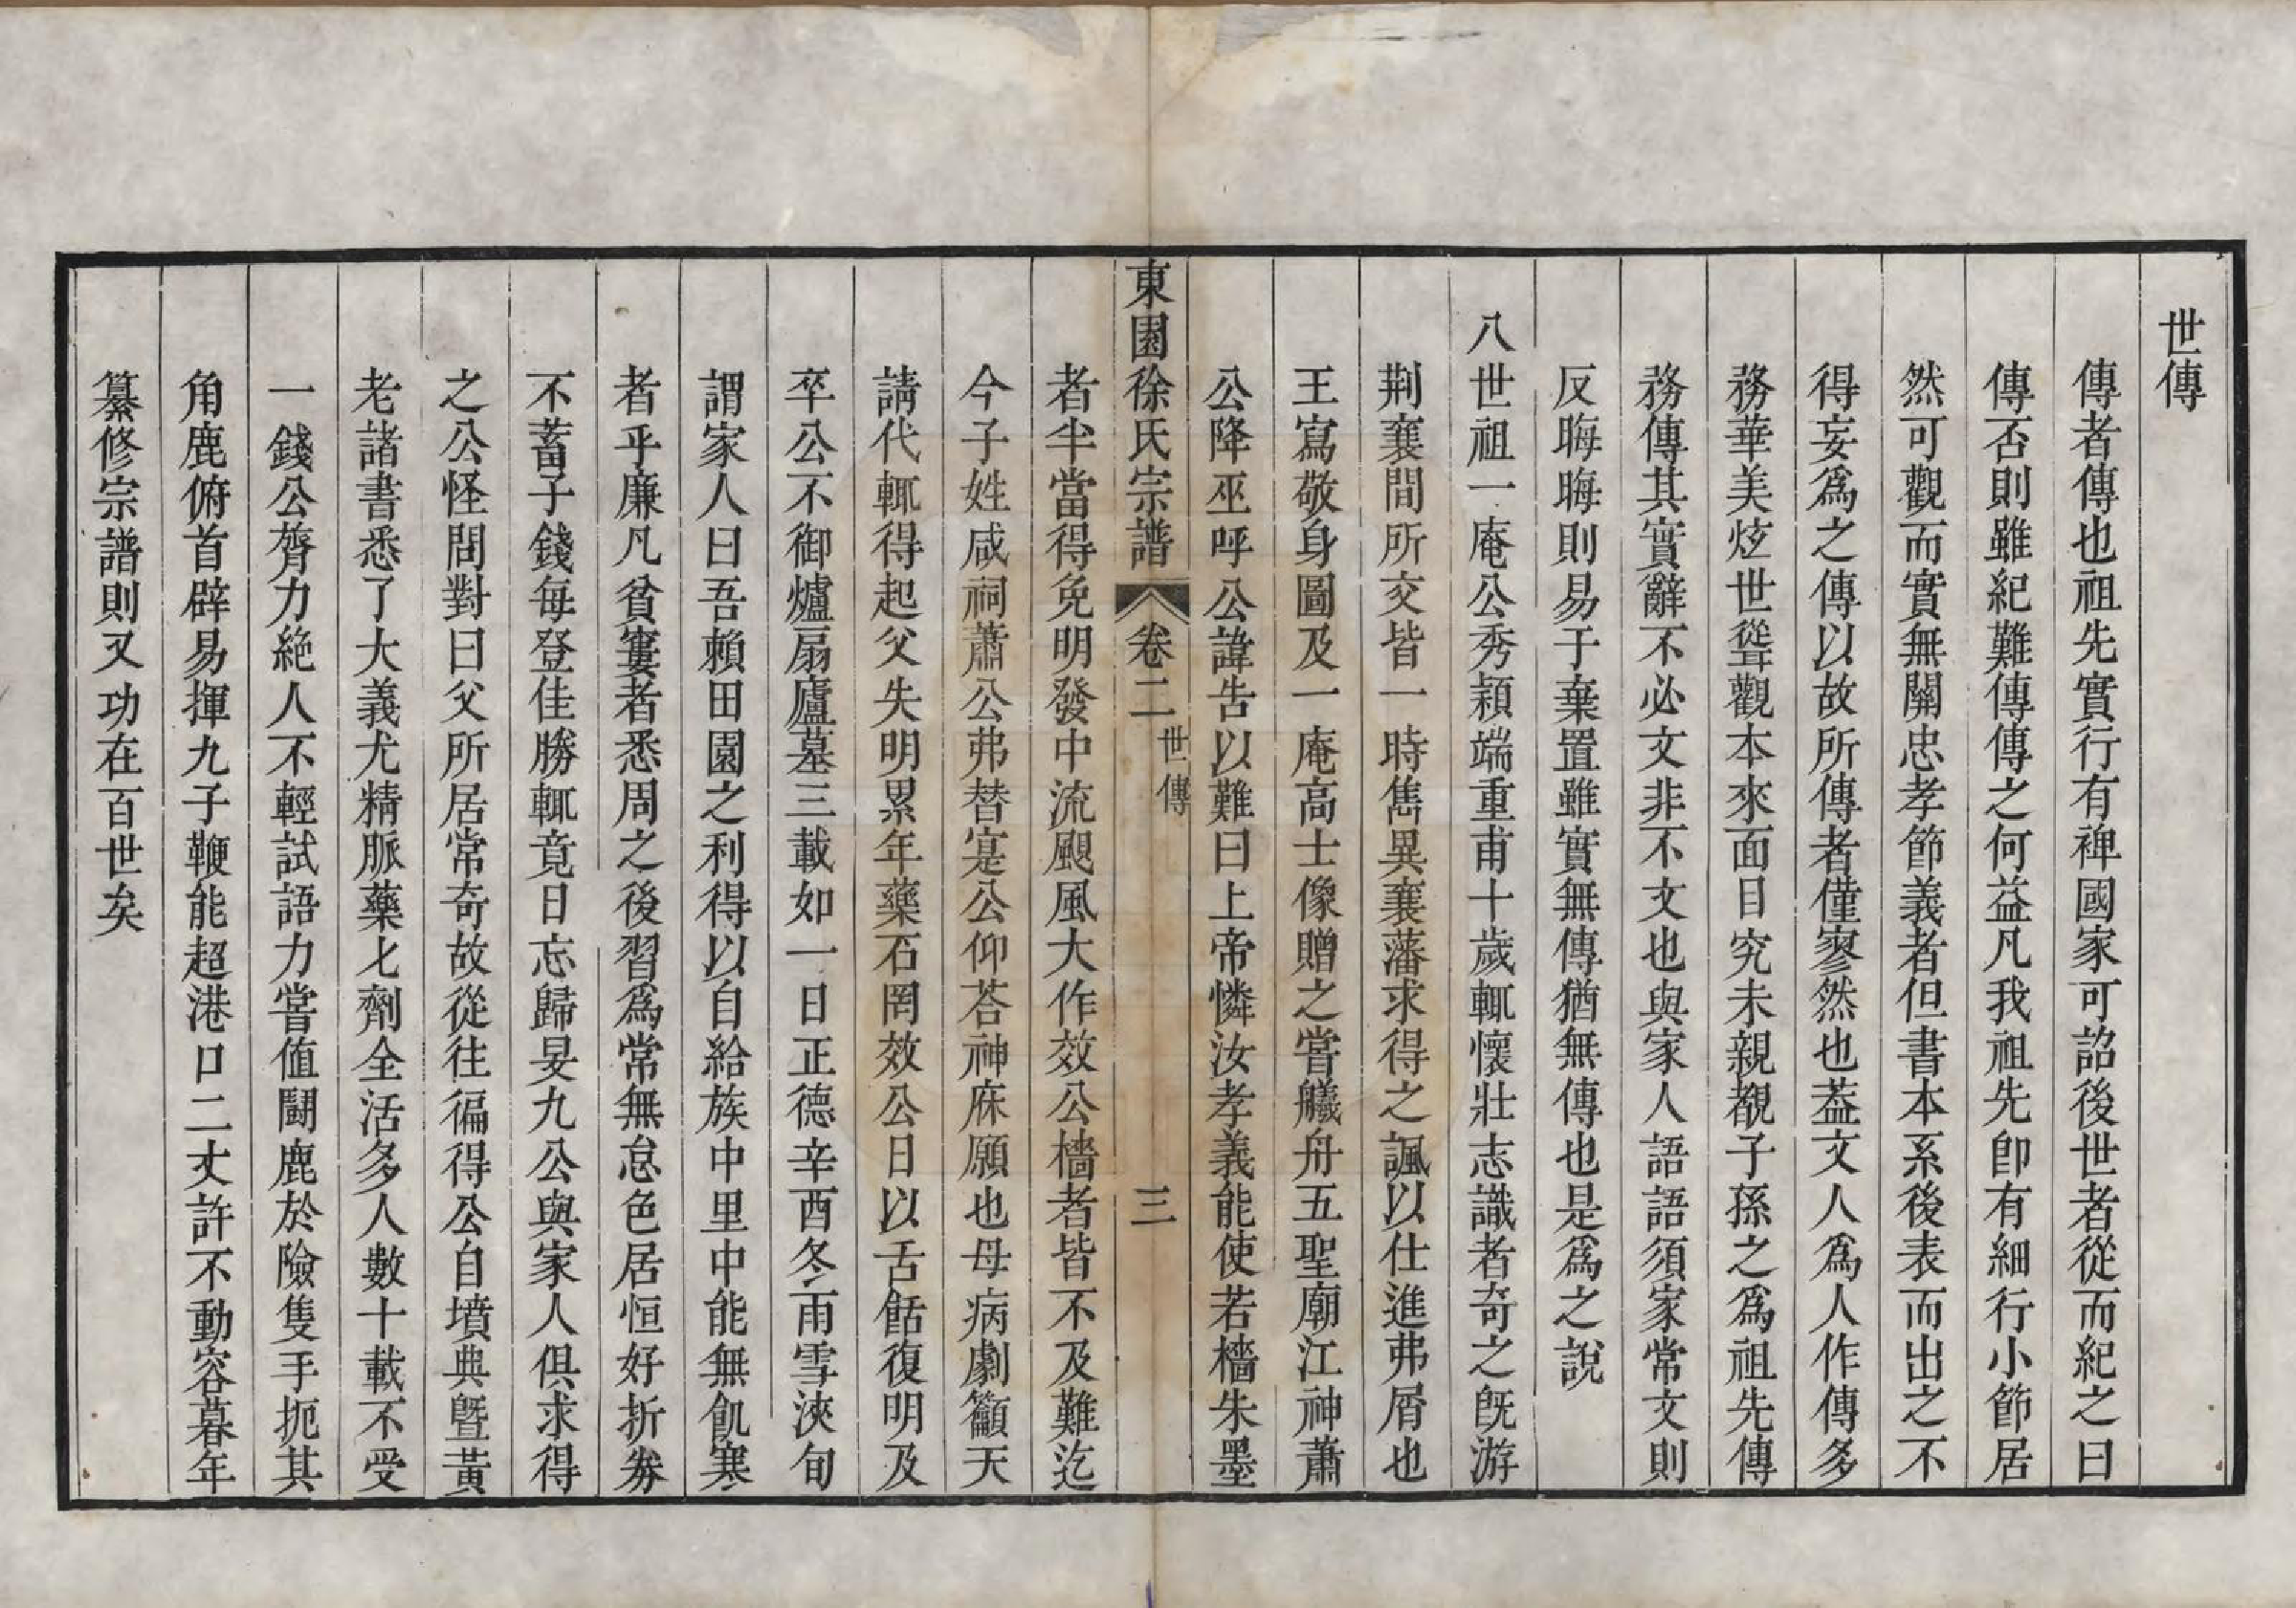 世傳
傳者傳也祖先實行有裨國家可詔後世者從而紀之曰
傳否則雖紀難傳傳之何益凡我祖先卽有細行小節居
然可觀而實無關忠孝節義者但書本系後表而出之不
得妄爲之傳以故所傳者僅寥然也葢文人爲人作傳多
務華美炫世聳觀本來面目究未親覩子孫之爲祖先傳
務傳其實辭不必文非不文也與家人語語須家常文則
反晦晦則易于棄置雖實無傳猶無傳也是爲之說
八世祖一庵公秀穎端重甫十歲輒懷壯志識者奇之旣游
荆襄間所交皆一時雋異襄藩求得之諷以仕進弗屑也
王寫敬身圖及一庵高士像贈之嘗艤舟五聖廟江神蕭
公降巫呼公諱告以難曰上帝憐汝孝義能使若檣朱墨
東園徐氏宗譜 卷二 世傳 三
者半當得免明發中流颶風大作效公檣者皆不及難迄
今子姓咸祠蕭公弗替寔公仰荅神庥願也母病劇籲天
請代輒得起父失明累年藥石罔效公日以舌餂復明及
卒公不御爐扇廬墓三載如一日正德辛酉冬雨雪浹旬
謂家人曰吾賴田園之利得以自給族中里中能無飢寒
者乎廉凡貧窶者悉周之後習爲常無怠色居恒好折券
不蓄子錢每登佳勝輒竟日忘歸旻九公與家人俱求得
之公怪問對曰父所居常奇故從往徧得公自墳典曁黃
老諸書悉了大義尤精脈藥匕劑全活多人數十載不受
一錢公膂力絶人不輕試語力嘗值鬪鹿於險隻手扼其
角鹿俯首辟易揮九子鞭能超港口二丈許不動容暮年
纂修宗譜則又功在百世矣